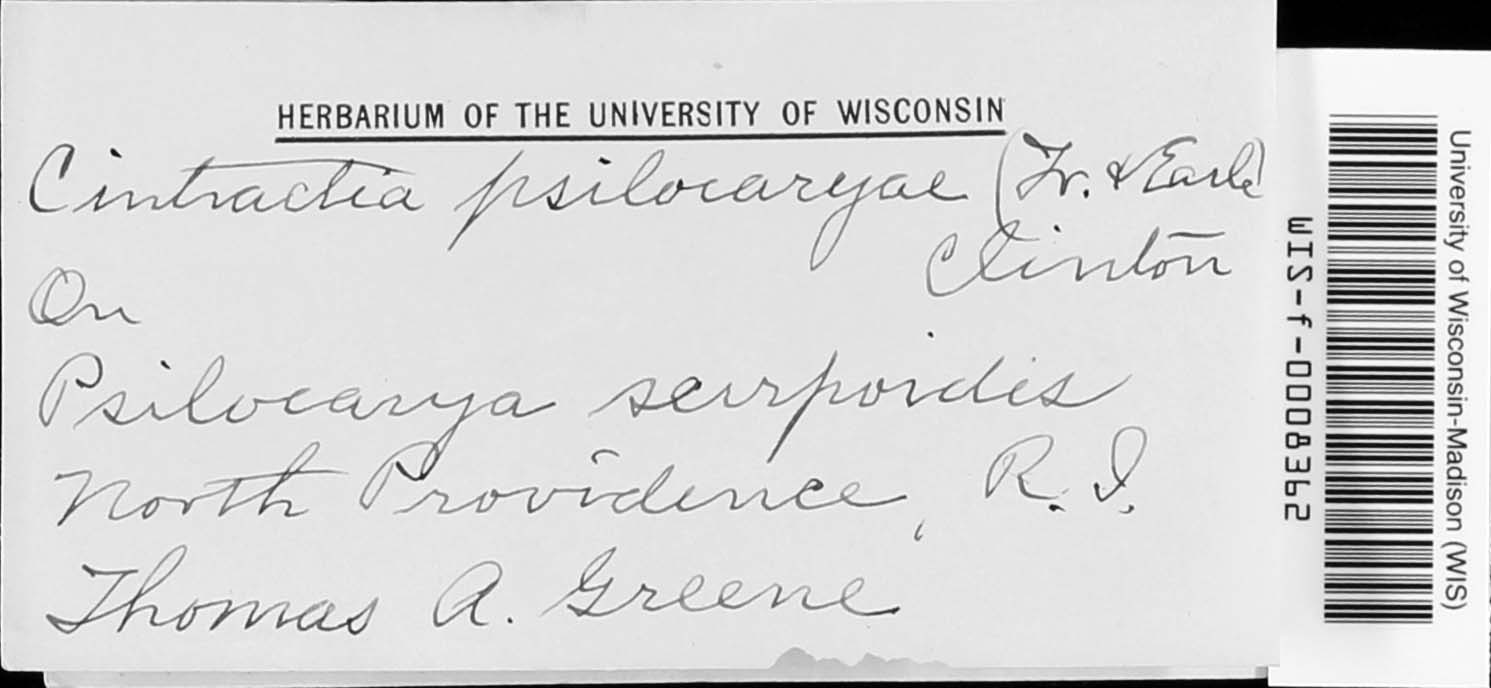 HERBARIUM OF THE UNIVERSITY OF WISCONSIN
Cintractia psilocaryae (Tr. & Earle)
Clinton
On
Psilocarya scirpoides
North Providence, R.I.
Thomas A. Greene
University of Wisconsin-Madison (WIS)
WIS-f-0008362